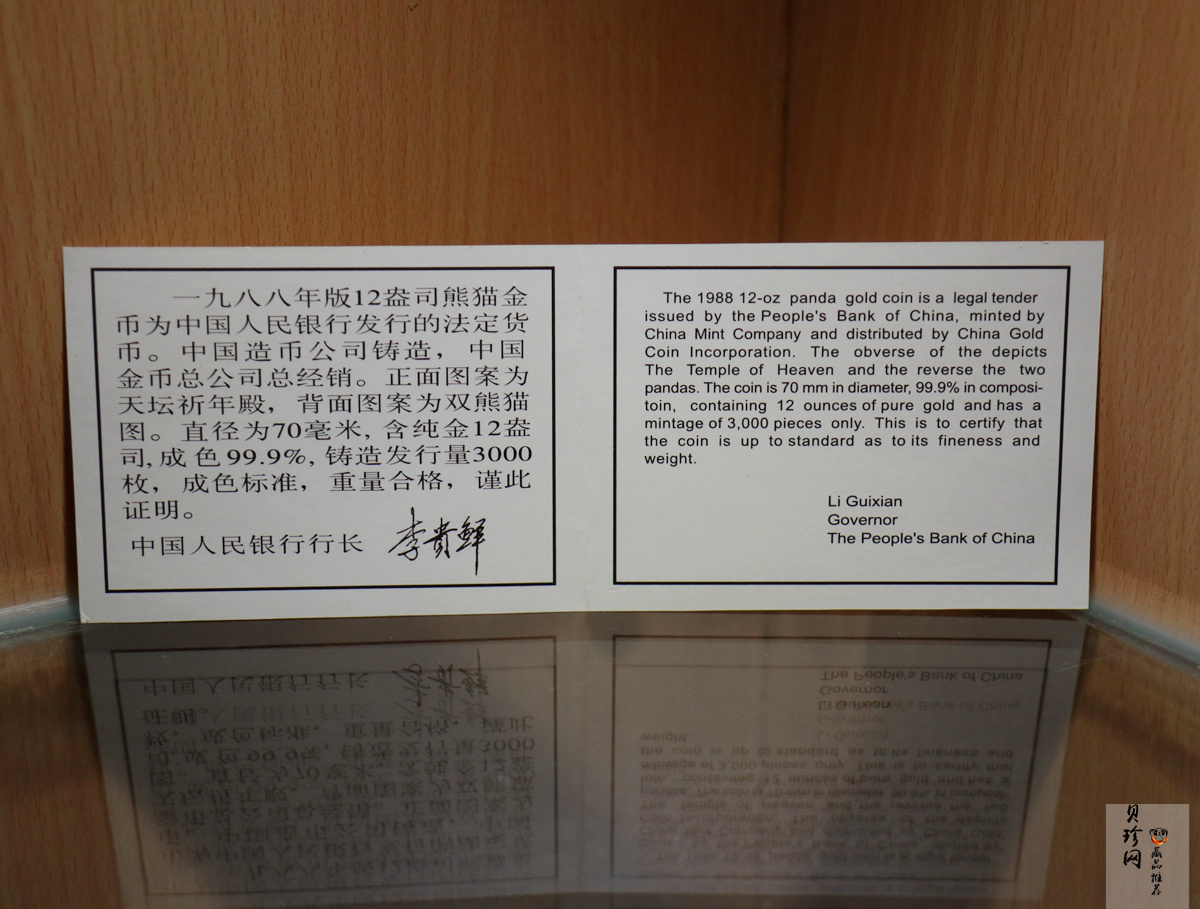 一九八八年版12盎司熊猫金
币为中国人民银行发行的法定货
币。中国造币公司铸造，中国
金币总公司总经销。正面图案为
天坛祈年殿，背面图案为双熊猫
图。直径为70毫米,含纯金12盎
司,成色99.9%,铸造发行量3000
枚，成色标准，重量合格，谨此
证明。
中国人民银行行长 李贵鲜
The 1988 12-oz panda gold coin is a legal tender
issued by the People's Bank of China, minted by
China Mint Company and distributed by China Gold
Coin Incorporation. The obverse of the depicts
The Temple of Heaven and the reverse the two
pandas. The coin is 70 mm in diameter, 99.9% in composi-
toin, containing 12 ounces of pure gold and has a
mintage of 3,000 pieces only. This is to certify that
the coin is up to standard as to its fineness and
weight.
Li Guixian
Governor
The People's Bank of China
贝珍网
藏品推荐